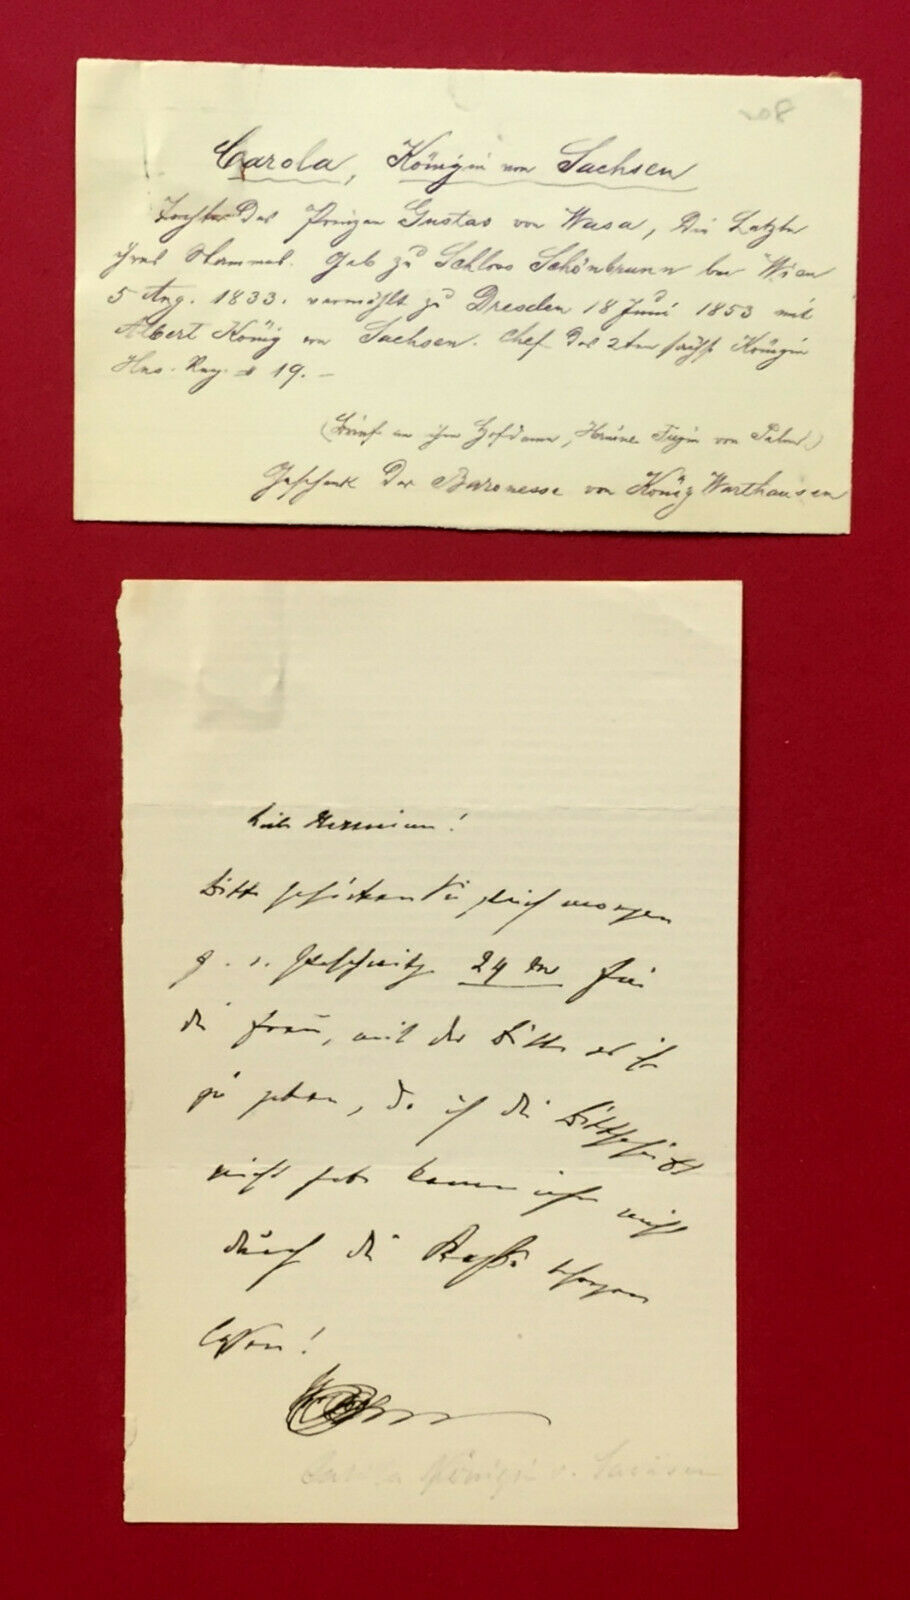 Carola, Königin von Sachsen
Tochter des Prinzen Gustav von Wasa, die Letzte
ihres Stammes. Geb zu Schloss Schönbrunn bei Wien
5 Aug. 1833. vermählt zu Dresden 18 Juni 1853 mit
Albert König von Sachsen. Chef des 2ten sächs Königin
Hus. Reg. № 19. –
(Brief an ihre Hofdame, von
Geschenk der Baronesse von König Warthausen
Liebe Hermine!
Bitte schicken Sie gleich morgen
24 M für
die Frau, mit der Bitte es ihr
zu geben, da ich die Bittschrift
nicht habe kann ich nicht
durch die Kasse
lassen!
Carola Königin v. Sachsen